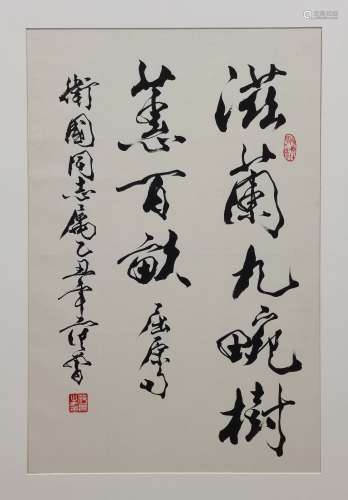 滋蘭九畹樹
蕙百畝 屈原句
衛國同志属 乙丑年